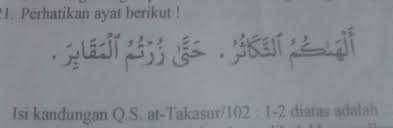 21. Perhatikan ayat berikut !
أَلْهَىٰكُمُ التَّكَاثُرُ . حَتَّىٰ زُرْتُمُ الْمَقَابِرَ .
Isi kandungan Q.S. at-Takasur/102 : 1-2 diatas adalah